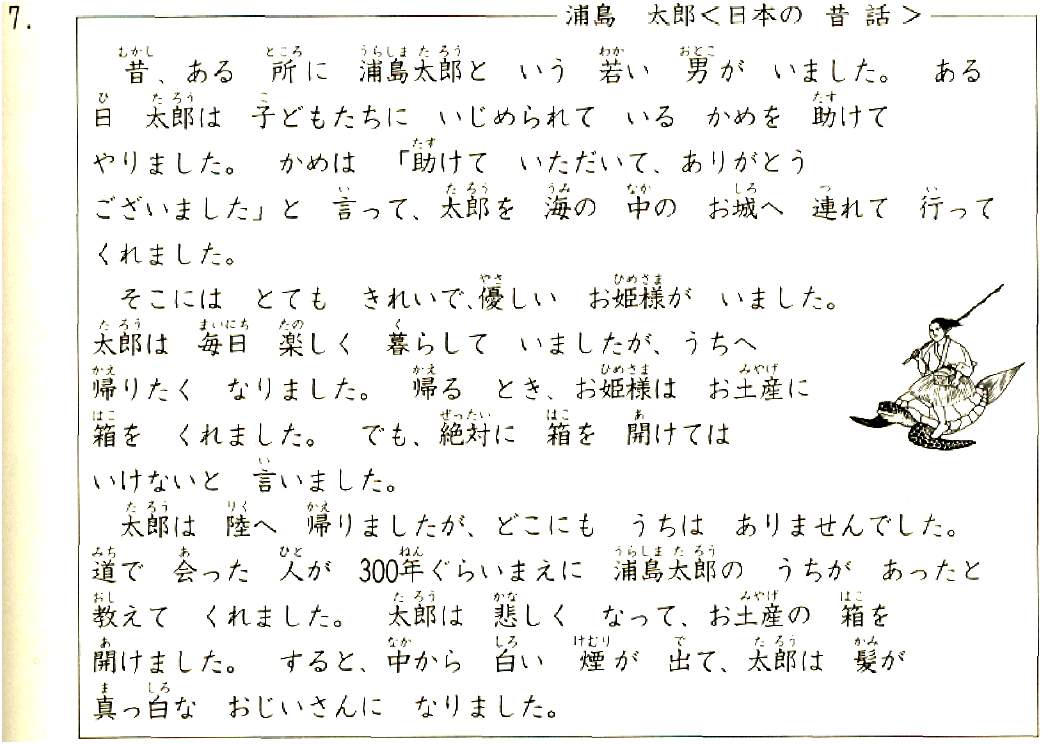 7.
浦島 太郎＜日本の 昔話＞
昔、ある 所に 浦島太郎と いう 若い 男が いました。 ある
日 太郎は 子どもたちに いじめられて いる かめを 助けて
やりました。 かめは 「助けて いただいて、ありがとう
ございました」と 言って、太郎を 海の 中の お城へ 連れて 行って
くれました。
そこには とても きれいで、優しい お姫様が いました。
太郎は 毎日 楽しく 暮らして いましたが、うちへ
帰りたく なりました。 帰る とき、お姫様は お土産に
箱を くれました。 でも、絶対に 箱を 開けては
いけないと 言いました。
太郎は 陸へ 帰りましたが、どこにも うちは ありませんでした。
道で 会った 人が 300年ぐらいまえに 浦島太郎の うちが あったと
教えて くれました。 太郎は 悲しく なって、お土産の 箱を
開けました。 すると、中から 白い 煙が 出て、太郎は 髪が
真っ白な おじいさんに なりました。